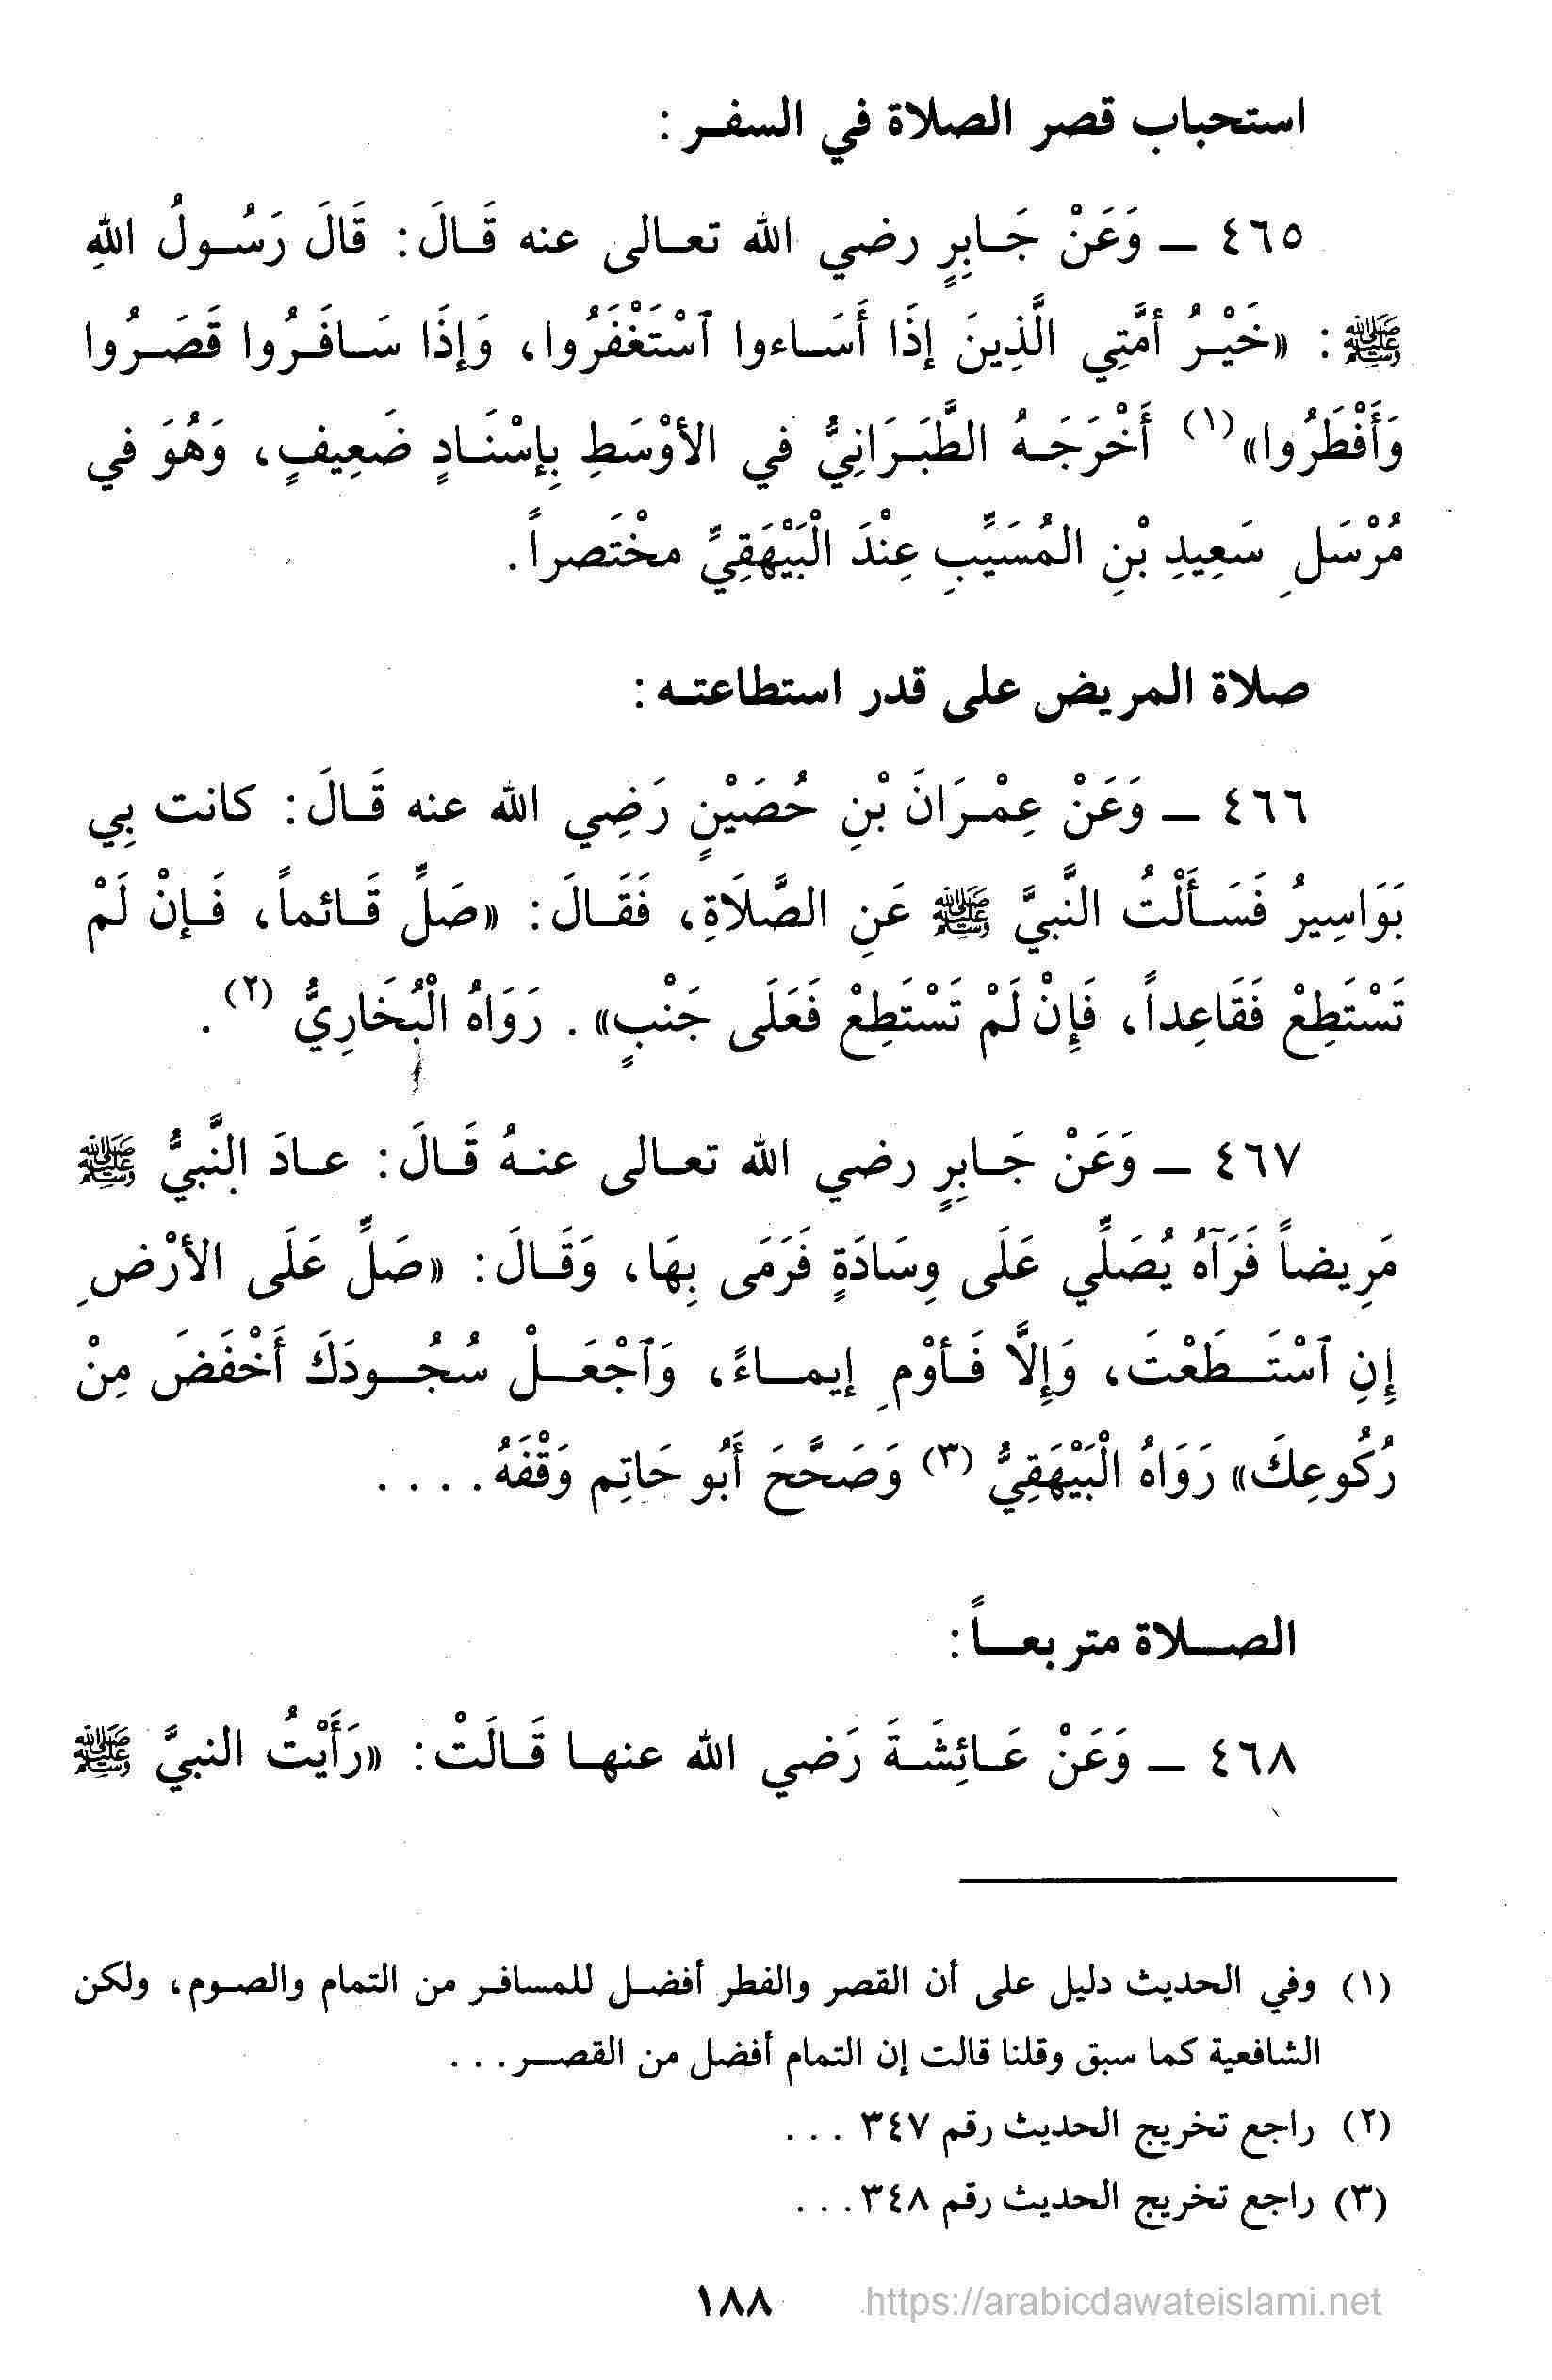 استحباب قصر الصلاة في السفر :
٤٦٥ — وَعَنْ جَابِرٍ رضي الله تعالى عنه قَالَ : قَالَ رَسُولُ اللهِ
ﷺ : «خَيْرُ أُمَّتِي الَّذِينَ إذَا أَسَاءوا ٱسْتَغْفَرُوا، وَإذَا سَافَرُوا قَصَرُوا
وَأَفْطَرُوا»(١) أَخْرَجَهُ الطَّبَرَانِيُّ في الأوْسَطِ بِإسْنَادٍ ضَعِيفٍ، وَهُوَ في
مُرْسَلِ سَعِيدِ بْنِ المُسَيِّبِ عِنْدَ الْبَيْهَقِيِّ مخْتَصراً.
صلاة المريض على قدر استطاعته :
٤٦٦ — وَعَنْ عِمْرَانَ بْنِ حُصَيْنٍ رَضِي الله عنه قَالَ : كانت بِي
بَوَاسِيرُ فَسَأَلْتُ النَّبيَّ ﷺ عَنِ الصَّلَاةِ، فَقَالَ : «صَلِّ قَائماً، فَإنْ لَمْ
تَسْتَطِعْ فَقَاعِداً، فَإِنْ لَمْ تَسْتَطِعْ فَعَلَى جَنْبٍ» . رَوَاهُ الْبُخَارِيُّ (٢) .
٤٦٧ — وَعَنْ جَابِرٍ رضي الله تعالى عنهُ قَالَ : عادَ النَّبيُّ ﷺ
مَرِيضاً فَرَآهُ يُصَلِّي عَلَى وِسَادَةٍ فَرَمَى بِهَا، وَقَالَ : «صَلِّ عَلَى الأرْضِ
إِنِ ٱسْتَطَعْتَ، وَإِلاَّ فَأوْمِ إيماءً، وَٱجْعَلْ سُجُودَكَ أَخْفَضَ مِنْ
رُكُوعِكَ» رَوَاهُ الْبَيْهَقِيُّ (٣) وَصَحَّحَ أَبُو حَاتِم وَقْفَهُ. . . .
الصلاة متربعاً :
٤٦٨ — وَعَنْ عَائِشَةَ رَضي الله عنها قَالَتْ : «رَأَيْتُ النبيَّ ﷺ
(١) وفي الحديث دليل على أن القصر والفطر أفضل للمسافر من التمام والصوم، ولكن
الشافعية كما سبق وقلنا قالت إن التمام أفضل من القصر. . .
(٢) راجع تخريج الحديث رقم ٣٤٧ . . .
(٣) راجع تخريج الحديث رقم ٣٤٨. . .
١٨٨
https://arabicdawateislami.net